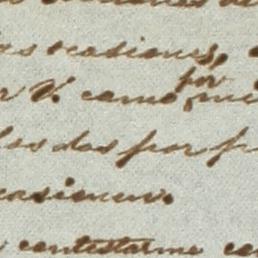 as ocasiones,
r V. como por mi
los dos por p
casiones.
contestarme co